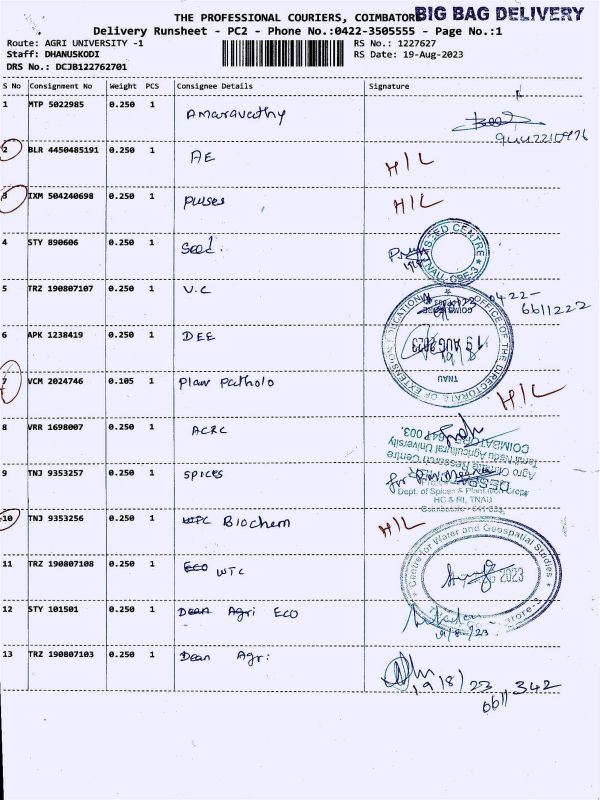 THE PROFESSIONAL COURIERS, COIMBATORE BIG BAG DELIVERY
Delivery Runsheet - PC2 - Phone No.:0422-3505555 - Page No.:1
Route: AGRI UNIVERSITY -1 RS No.: 1227627
Staff: DHANUSKODI RS Date: 19-Aug-2023
DRS No.: DCJB122762701
S No Consignment No Weight PCS Consignee Details Signature
1 MTP 5022985 0.250 1 Amaravathy
2 BLR 4450485191 0.250 1 AE H/L
3 IXM 504240698 0.250 1 pulses H/L
4 STY 890606 0.250 1 Seed. SEED CENTRE TNAU, CBE-3
5 TRZ 190807107 0.250 1 V.C 0422-
6611222
6 APK 1238419 0.250 1 DEE OFFICE OF THE DIRECTORATE OF EXTENSION EDUCATION 19 AUG 2023 TNAU
7 VCM 2024746 0.105 1 Plant Patholo H/L
8 VRR 1698007 0.250 1 ACRC
COIMBATORE-641 003.
Tamil Nadu Agricultural University
Agro Climate Research Centre
9 TNJ 9353257 0.250 1 SPICES for
Dept. of Spices & Plantation Crops
HC & RI, TNAU
Coimbatore - 641 003.
10 TNJ 9353256 0.250 1 WTC Biochem H/L
11 TRZ 190807108 0.250 1 ECO WTC Centre for Water and Geospatial Studies 2023
12 STY 101501 0.250 1 Dean Agri ECO 19/8/23
13 TRZ 190807103 0.250 1 Dean Agri: 19/8/23
6611342